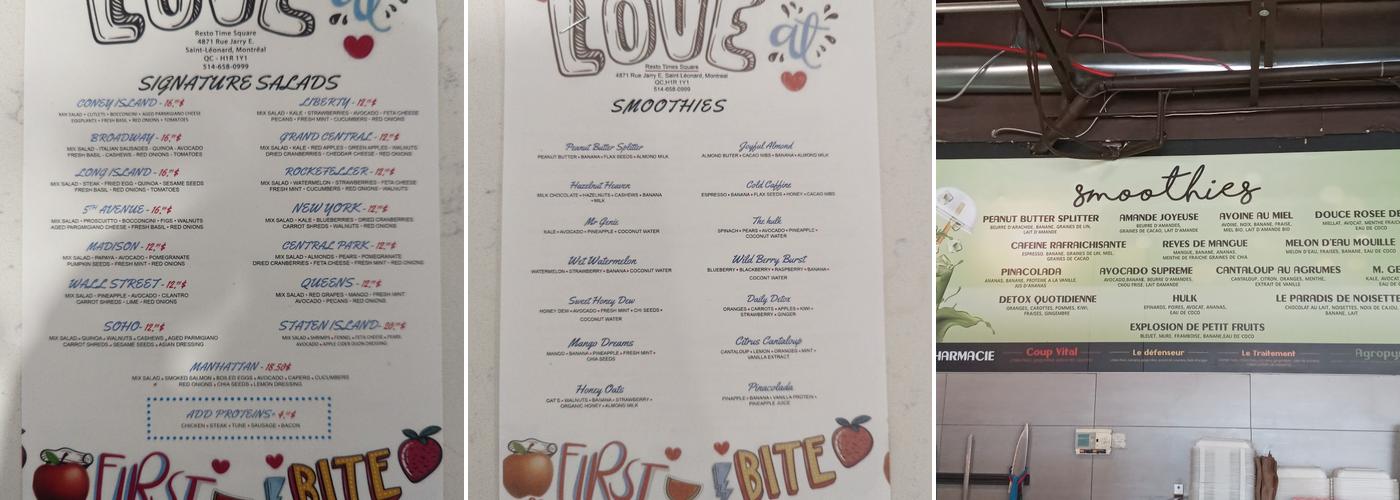 LOVE at
Resto Time Square
4871 Rue Jarry E.
Saint-Léonard, Montréal
QC - H1R 1Y1
514-658-0999
SIGNATURE SALADS
CONEY ISLAND - 16,99$
MIX SALAD • CUTLETS • BOCCONCINI • AGED PARMIGIANO CHEESE
EGGPLANTS • FRESH BASIL • RED ONIONS • TOMATOES
BROADWAY - 16,99$
MIX SALAD - ITALIAN SAUSAGES - QUINOA - AVOCADO
FRESH BASIL - CASHEWS - RED ONIONS - TOMATOES
LONG ISLAND - 16,99$
MIX SALAD - STEAK - FRIED EGG - QUINOA - SESAME SEEDS
FRESH BASIL - RED ONIONS - TOMATOES
5TH AVENUE - 16,99$
MIX SALAD - PROSCIUTTO - BOCCONCINI - FIGS - WALNUTS
AGED PARMIGIANO CHEESE - FRESH BASIL - RED ONIONS
MADISON - 12,99$
MIX SALAD - PAPAYA - AVOCADO - POMEGRANATE
PUMPKIN SEEDS - FRESH MINT - RED ONIONS
WALL STREET - 12,99$
MIX SALAD - PINEAPPLE - AVOCADO - CILANTRO
CARROT SHREDS - LIME - RED ONIONS
SOHO - 12,99$
MIX SALAD • QUINOA • WALNUTS • CASHEWS • AGED PARMIGIANO
CARROT SHREDS • SESAME SEEDS • ASIAN DRESSING
LIBERTY - 12,99$
MIX SALAD - KALE - STRAWBERRIES - AVOCADO - FETA CHEESE
PECANS - FRESH MINT - CUCUMBERS - RED ONIONS
GRAND CENTRAL - 12,99$
MIX SALAD - KALE - RED APPLES - GREEN APPLES - WALNUTS
DRIED CRANBERRIES - CHEDDAR CHEESE - RED ONIONS
ROCKEFELLER - 12,99$
MIX SALAD - WATERMELON - STRAWBERRIES - FETA CHEESE
FRESH MINT - CUCUMBERS - RED ONIONS - WALNUTS
NEW YORK - 12,99$
MIX SALAD - KALE - BLUEBERRIES - DRIED CRANBERRIES
CARROT SHREDS - WALNUTS - RED ONIONS
CENTRAL PARK - 12,99$
MIX SALAD - ALMONDS - PEARS - POMEGRANATE
DRIED CRANBERRIES - FETA CHEESE - FRESH MINT - RED ONIONS
QUEENS - 12,99$
MIX SALAD - RED GRAPES - MANGO - FRESH MINT
AVOCADO - PECANS - RED ONIONS
STATEN ISLAND - 20,99$
MIX SALAD • SHRIMPS • FENNEL • FETA CHEESE • PEARS
AVOCADOS • APPLE CIDER DIJON DRESSING
MANHATTAN - 18.50$
MIX SALAD • SMOKED SALMON • BOILED EGGS • AVOCADO • CAPERS • CUCUMBERS
RED ONIONS • CHIA SEEDS • LEMON DRESSING
ADD PROTEINS+ 4,99$
CHICKEN • STEAK • TUNE • SAUSAGE • BACON
FIRST BITE
LOVE at
Resto Times Square
4871 Rue Jarry E, Saint Léonard, Montreal
QC,H1R 1Y1
514-658-0999
SMOOTHIES
Peanut Butter Splitter
PEANUT BUTTER • BANANA • FLAX SEEDS • ALMOND MILK
Hazelnut Heaven
MILK CHOCOLATE • HAZELNUTS • CASHEWS • BANANA
• MILK
Mr Genis
KALE • AVOCADO • PINEAPPLE • COCONUT WATER
Wet Watermelon
WATERMELON • STRAWBERRY • BANANA • COCONUT WATER
Sweet Honey Dew
HONEY DEW • AVOCADO • FRESH MINT • CHI SEEDS •
COCONUT WATER
Mango Dreams
MANGO • BANANA • PINEAPPLE • FRESH MINT •
CHIA SEEDS
Honey Oats
OAT'S • WALNUTS • BANANA • STRAWBERRY •
ORGANIC HONEY • ALMOND MILK
Joyful Almond
ALMOND BUTTER • CACAO NIBS • BANANA • ALMOND MILK
Cold Caffine
ESPRESSO • BANANA • FLAX SEEDS • HONEY • CACAO NIBS
The hulk
SPINACH • PEARS • AVOCADO • PINEAPPLE •
COCONUT WATER
Wild Berry Burst
BLUEBERRY • BLACKBERRY • RASPBERRY • BANANA •
COCONUT WATER
Daily Detox
ORANGES • CARROTS • APPLES • KIWI •
STRAWBERRY • GINGER
Citrus Cantaloup
CANTALOUP • LEMON • ORANGES • MINT •
VANILLA EXTRACT
Pinacolada
PINAPPLE • BANANA • VANILLA PROTEIN •
PINEAPPLE JUICE
FIRST BITE
smoothies
PEANUT BUTTER SPLITTER
BEURRE D'ARACHIDE, BANANE, GRAINES DE LIN,
LAIT D'AMANDE
AMANDE JOYEUSE
BEURRE D'AMANDES,
GRAINES DE CACAO, LAIT D'AMANDE
AVOINE AU MIEL
AVOINE, NOIX, BANANE, FRAISE,
MIEL BIO, LAIT D'AMANDE
DOUCE ROSEE D
MIELLAT, AVOCAT, MENTHE FRAICH
EAU DE COCO
CAFEINE RAFRAICHISANTE
ESPRESSO, BANANE, GRAINES DE LIN, MIEL,
GRAINES DE CACAO
REVES DE MANGUE
MANGUE, BANANE, ANANAS,
MENTHE DE FRAICHE GRAINES DE CHIA
MELON D'EAU MOUILLE
MELON D'EAU, FRAISES, BANANE, EAU DE COCO
PINACOLADA
ANANAS, BANANE, PROTEINE A LA VANILLE,
JUS D'ANANAS
AVOCADO SUPREME
AVOCADO,BANANE, BEURRE D'AMANDES,
CHOU FRISE, LAIT D'AMANDE
CANTALOUP AU AGRUMES
CANTALOUP, CITRON, ORANGES, MENTHE,
EXTRAIT DE VANILLE
M. GE
KALE, AVOCAT,
EAU DE
DETOX QUOTIDIENNE
ORANGES, CAROTTES, POMMES, KIWI,
FRAISES, GINGEMBRE
HULK
EPINARDS, POIRES, AVOCAT, ANANAS,
EAU DE COCO
LE PARADIS DE NOISETTE
CHOCOLAT AU LAIT, NOISETTES, NOIX DE CAJOU,
BANANE, LAIT
EXPLOSION DE PETIT FRUITS
BLEUET, MURE, FRAMBOISE, BANANE,EAU DE COCO
HARMACIE
Coup Vital
Le défenseur
Le Traitement
Agropy